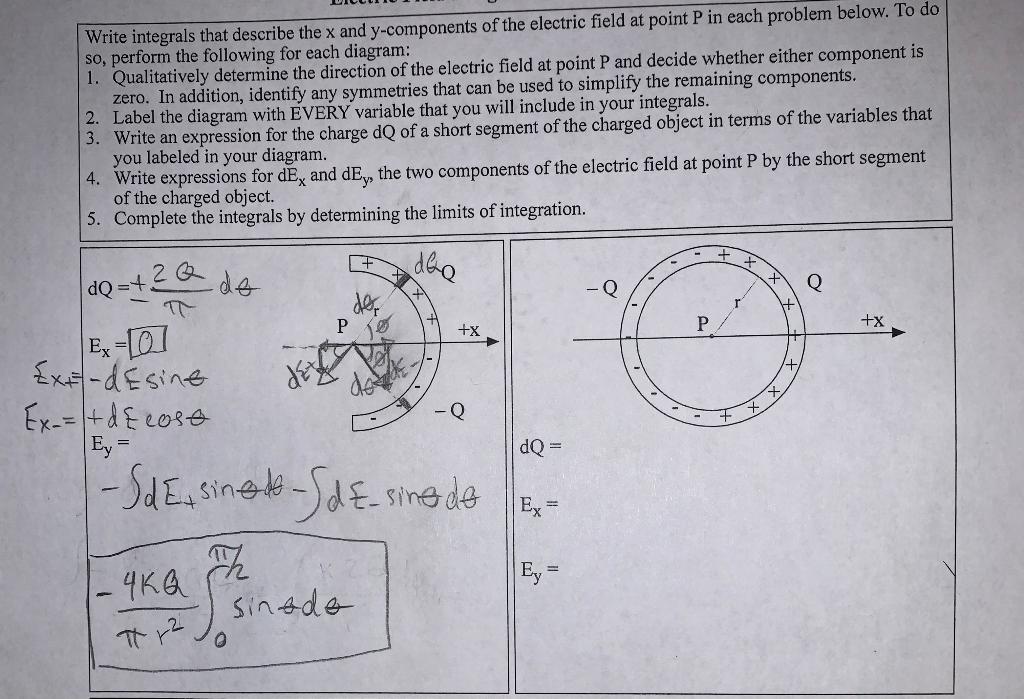 Write integrals that describe the x and y-components of the electric field at point P in each problem below. To do
so, perform the following for each diagram:
1. Qualitatively determine the direction of the electric field at point P and decide whether either component is
zero. In addition, identify any symmetries that can be used to simplify the remaining components.
2. Label the diagram with EVERY variable that you will include in your integrals.
3. Write an expression for the charge dQ of a short segment of the charged object in terms of the variables that
you labeled in your diagram.
4. Write expressions for dEx and dEy, the two components of the electric field at point P by the short segment
of the charged object.
5. Complete the integrals by determining the limits of integration.
dQ = ± 2Q/π dθ
Ex = 0
Ex+ = -dE sinθ
Ex- = +dE cosθ
Ey =
-∫dE+ sinθdθ -∫dE- sinθ dθ
- 4KQ/πr² ∫0 π/2 sinθdθ
+ + + + - - -
dQ
Q
r
θ
P
+x
-Q
-Q
Q
P
r
+x
dQ =
Ex =
Ey =